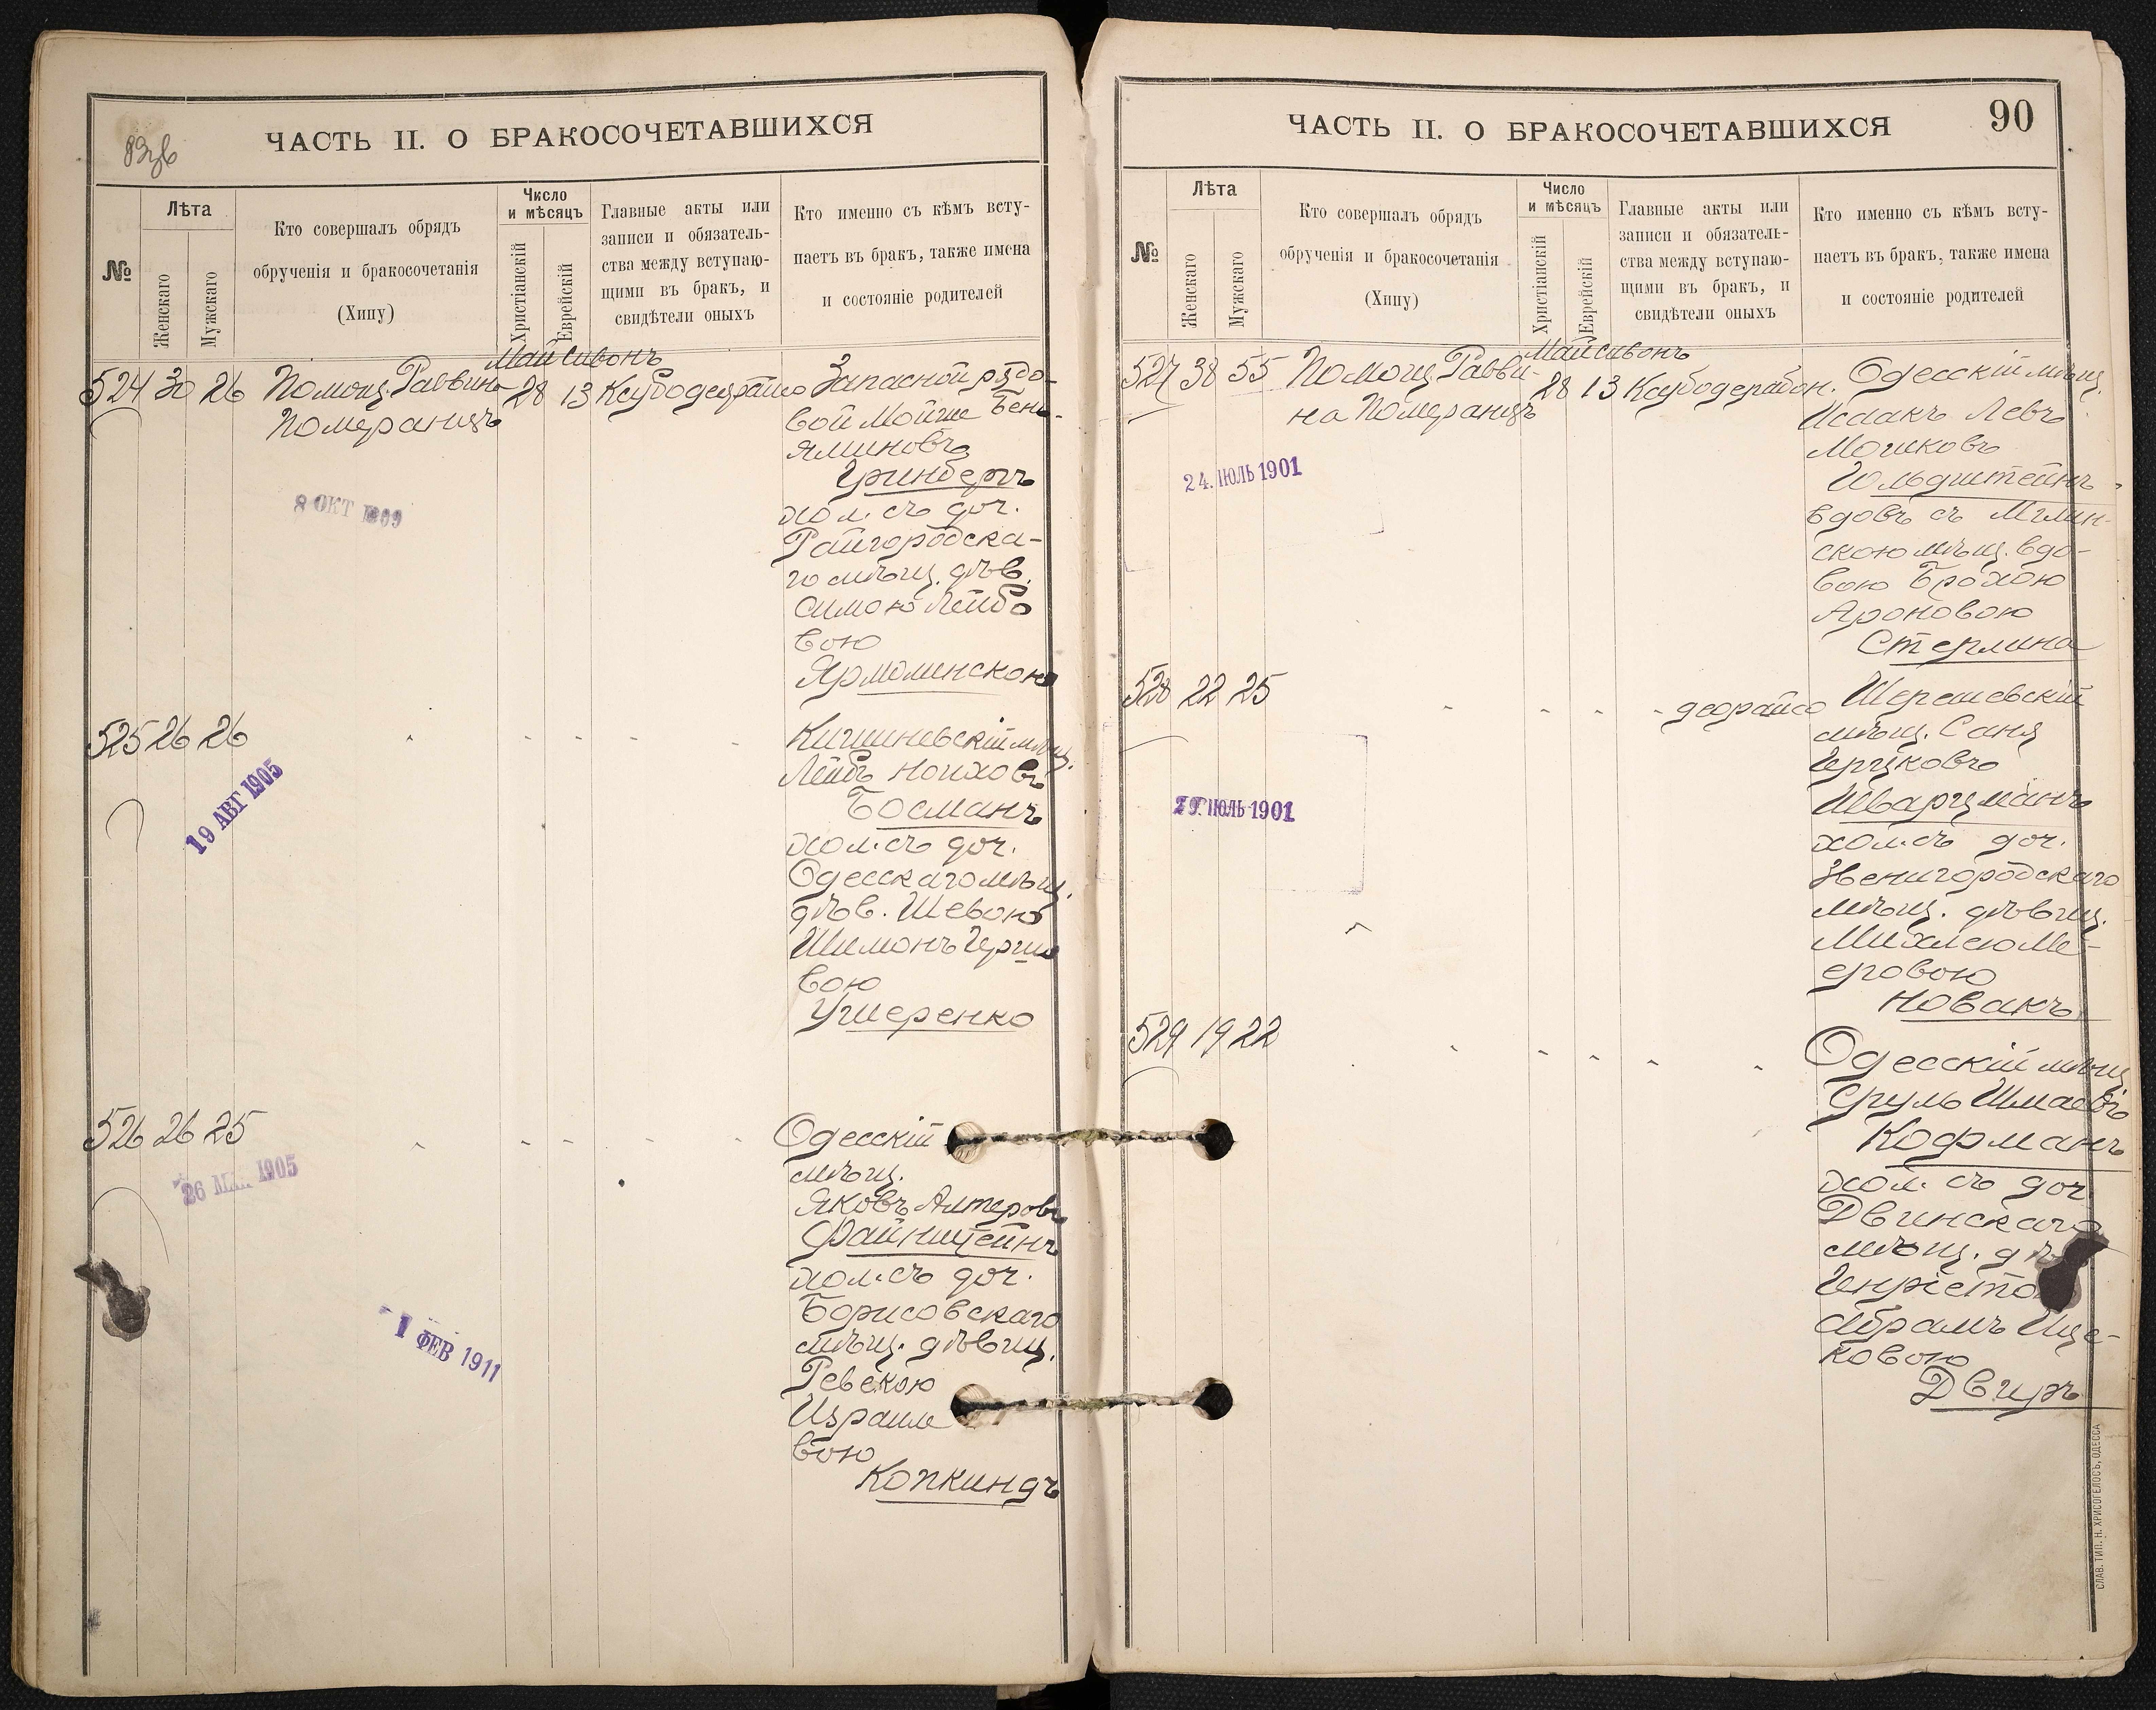 ЧАСТЬ II. О БРАКОСОЧЕТАВШИХСЯ
№
Лѣта
Женскаго
Мужскаго
Кто совершалъ обрядъ
обрученія и бракосочетанія
(Хипу)
Число
и мѣсяцъ
Христіанскій
Еврейскій
Главные акты или
записи и обязатель-
ства между вступаю-
щими въ бракъ, и
свидѣтели оныхъ
Кто именно съ кѣмъ всту-
паетъ въ бракъ, также имена
и состояніе родителей
Май Сивонъ
524 30 26 Помощ. Раввина
Померанцъ
28 13
Запасной рядо-
вой Мойше Бень-
яминовъ
Гринбергъ
хол. съ доч.
Райгородска-
го мѣщ. дѣв.
Симою Лейбо
вою
Ярмолинскою
8 ОКТ 1899
525 26 26
Кишиневскій мѣщ.
Лейбъ Ноиховъ
Босманъ
хол. съ доч.
Одесскаго мѣщ.
дѣв. Шевою
Шимонъ Герш
вою
Ушеренко
19 АВГ 1905
526 26 25
Одесскій
мѣщ.
Яковъ Алтеровъ
Файнштейнъ
хол. съ доч.
Борисовскаго
мѣщ. дѣвиц.
Ревекою
Израиле
вою
Копкиндъ
26 1905
1 ФЕВ 1911
ЧАСТЬ II. О БРАКОСОЧЕТАВШИХСЯ
90
№
Лѣта
Женскаго
Мужскаго
Кто совершалъ обрядъ
обрученія и бракосочетанія
(Хипу)
Число
и мѣсяцъ
Христіанскій
Еврейскій
Главные акты или
записи и обязатель-
ства между вступаю-
щими въ бракъ, и
свидѣтели оныхъ
Кто именно съ кѣмъ всту-
паетъ въ бракъ, также имена
и состояніе родителей
Май Сивонъ
527 38 55 Помощ. Равви-
на Померанцъ
28 13
Одесскій мѣщ.
Исаакъ Левъ
Мошковъ
Гольдштейнъ
вдовъ съ Мглин-
скою мѣщ. вдо-
вою Брохою
Ароновою
Стерлина
24. ІЮЛЬ 1901
528 22 25
деорайсо
Шерешевскій
мѣщ. Саня
Герцковъ
Шварцманъ
хол. съ доч.
Звенигородскаго
мѣщ. дѣвиц.
Михлею Ме-
еровою
Новакъ
ІЮЛЬ 1901
529 19 22
Одесскій мѣщ.
Сруль Шмаевъ
Кофманъ
хол. съ доч.
Двинскаго
мѣщ.
Абрамъ Ице-
ковою
Двиръ
СЛАВ. ТИП. Н. ХРИСОГЕЛОСЪ, ОДЕССА